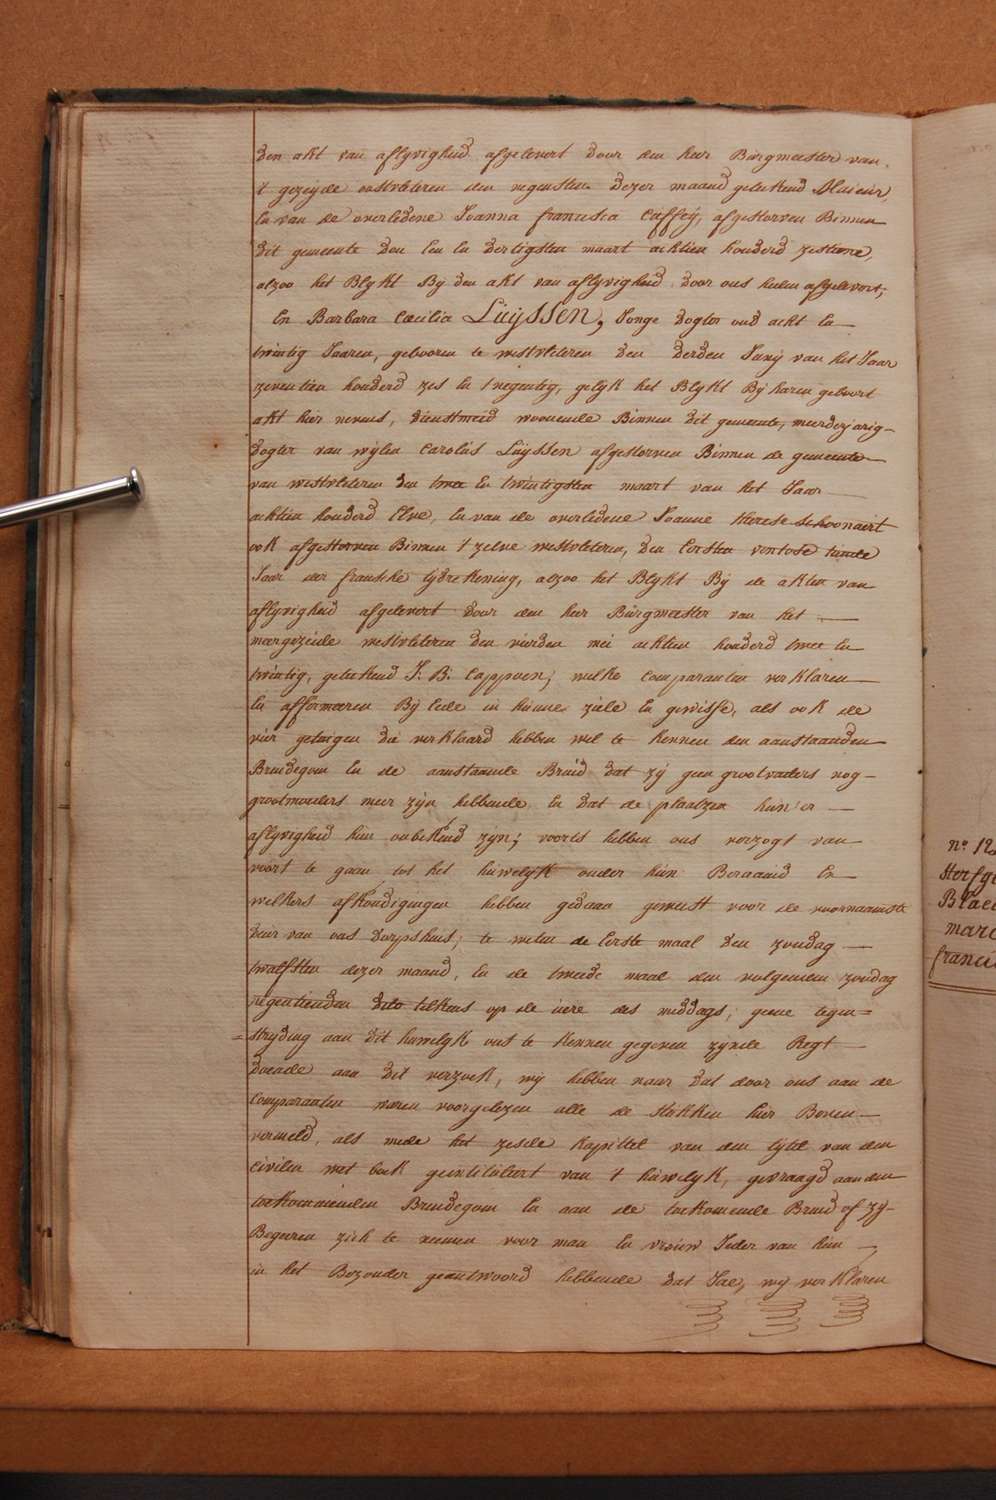 den akt van aflyvigheid afgelevert door den heer Burgmeester van
't gezeyde oostvleteren den negensten dezer maand geteekend Maieur,
En van de overledene Joanna francisca Caffeÿ, afgestorven Binnen
dit gemeente den Een En dertigsten maart achtien honderd zestiene,
alzoo het Blykt By den akt van aflyvigheid door ons heden afgelevert;
En Barbara Cæcilia Luÿssen, Jonge dogter oud acht En
twintig Jaaren, gebooren te westvleteren den derden Junÿ van het Jaar
zeventien honderd zes En tnegentig, gelyk het Blykt Bÿ haren geboort
akt hier nevens, dienstmeid woonende Binnen dit gemeente, meerderjarig-
dogter van wylen Carolus Luÿssen afgestorven Binnen de gemeente
van westvleteren den twee En twintigsten maart van het Jaar
achtien honderd Elve, En van de overledene Joanne therese schoonaert
ook afgestorven Binnen 't zelve westvleteren, den Eersten ventose tiende
Jaar der fransche tydrekening, alzoo het Blykt Bÿ de akten van
aflyvigheid afgelevert door den heer Burgmeester van het
meergezeide westvleteren den vierden mei achtien honderd twee En
twintig, geteekend J. B. Cappoen; welke comparanten verklaren
En affirmeeren Bÿ Eede in hunne ziele En gewisse, als ook de
vier getuigen die verklaard hebben wel te kennen den aanstaanden
Bruidegom En de aanstaande Bruid dat zÿ geen grootvaders nog-
grootmoeders meer zÿn hebbende, En dat de plaatzen hun'er
aflyvigheid hun onbekend zÿn; voorts hebben ons verzogt van
voort te gaan tot het huwelyk onder hun Beraamd En
welkers afkondigingen hebben gedaan geweest voor de voornaamste
deur van ons dorpshuis; te weten de Eerste maal den zondag
twalfsten dezer maand, En de tweede maal den volgenden zondag
negentienden dito telkens op de uere des middags, geene tegen=
=stryding aan dit huwelyk ons te kennen gegeven zÿnde Regt
doende aan dit verzoek, wÿ hebben naer dat door ons aan de
Comparanten waren voorgelezen alle de stukken hier Boven
vermeld, als mede het zesde kapittel van den tytel van den
civilen wet boek geintituleert van 't huwelyk, gevraagd aan den
toekommenden Bruidegom En aan de toekomende Bruid of zÿ-
Begeeren zich te neemen voor man En vrouw Jeder van hun
in het Bezonder geantwoord hebbende dat Jae, wÿ verklaren
n.º 12
Sterfge
Blae
marc
franci